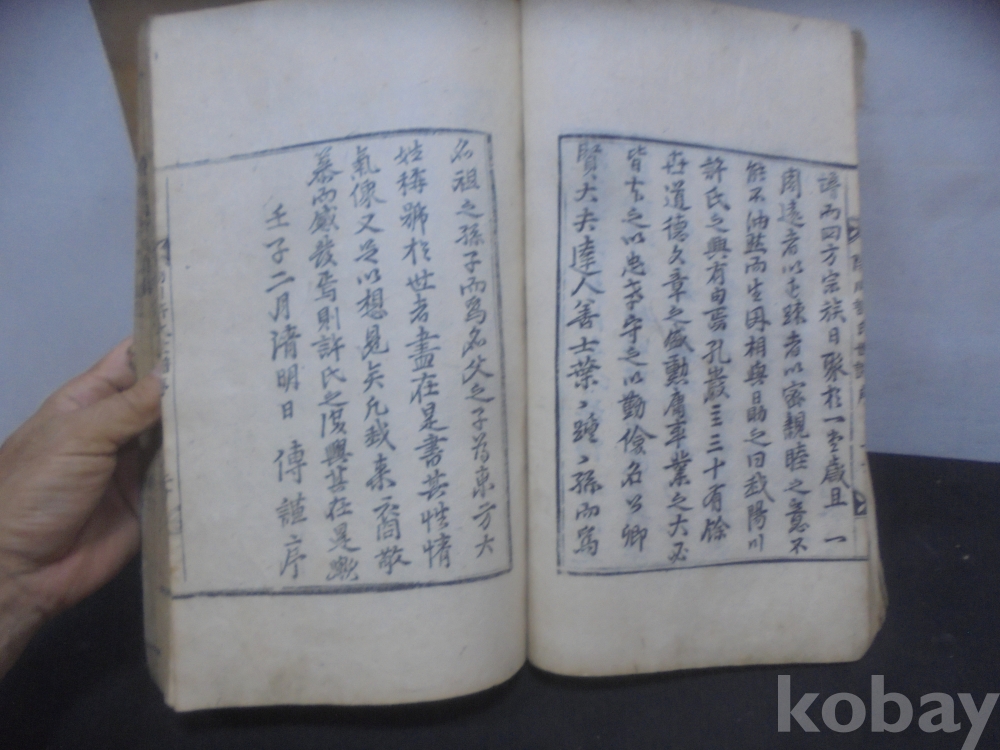 譜而四方宗族日聚於一堂歲且一
周遠者以近踈者以密親睦之意不
能不油然而生因相與勖之曰我陽川
許氏之興有由焉孔巖三三十有餘
世道德文章之盛勳庸事業之大
皆有之以忠孝守之以勤儉名公卿
賢大夫達人善士葉〻踵〻孫而爲
名祖之孫子而爲名父之子爲東方大
姓稱號於世者盡在是書其性情
氣像又足以想見矣凡我來裔敬
慕而感發焉則許氏之復興其在是歟
壬子二月淸明日 傳謹序
kobay